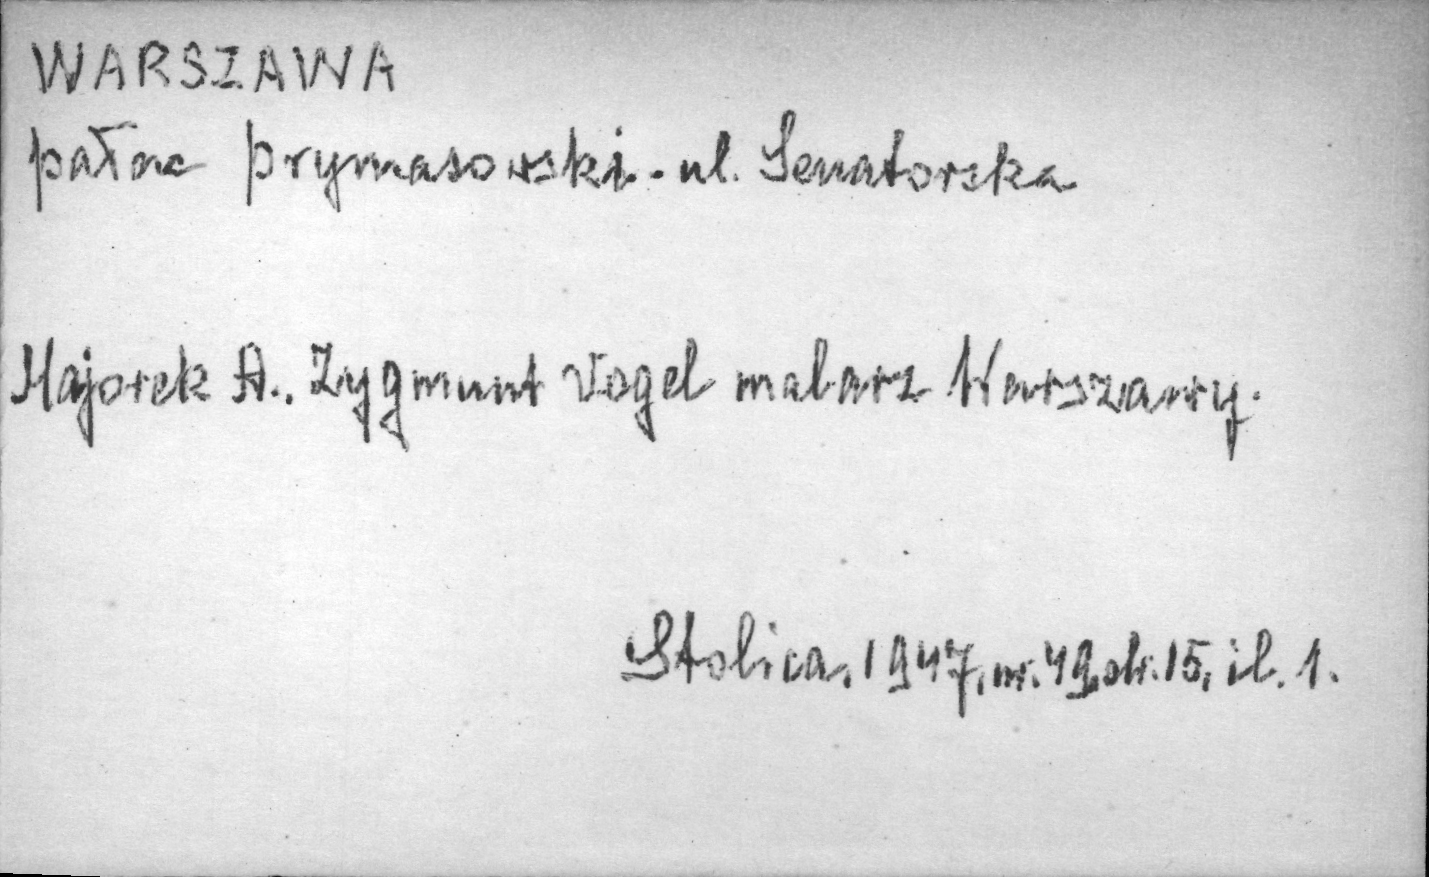 WARSZAWA
pałac prymasowski - ul. Senatorska
Majorek A., Zygmunt Vogel malarz Warszawy.
Stolica, 1947, nr. 49, str. 15, il. 1.